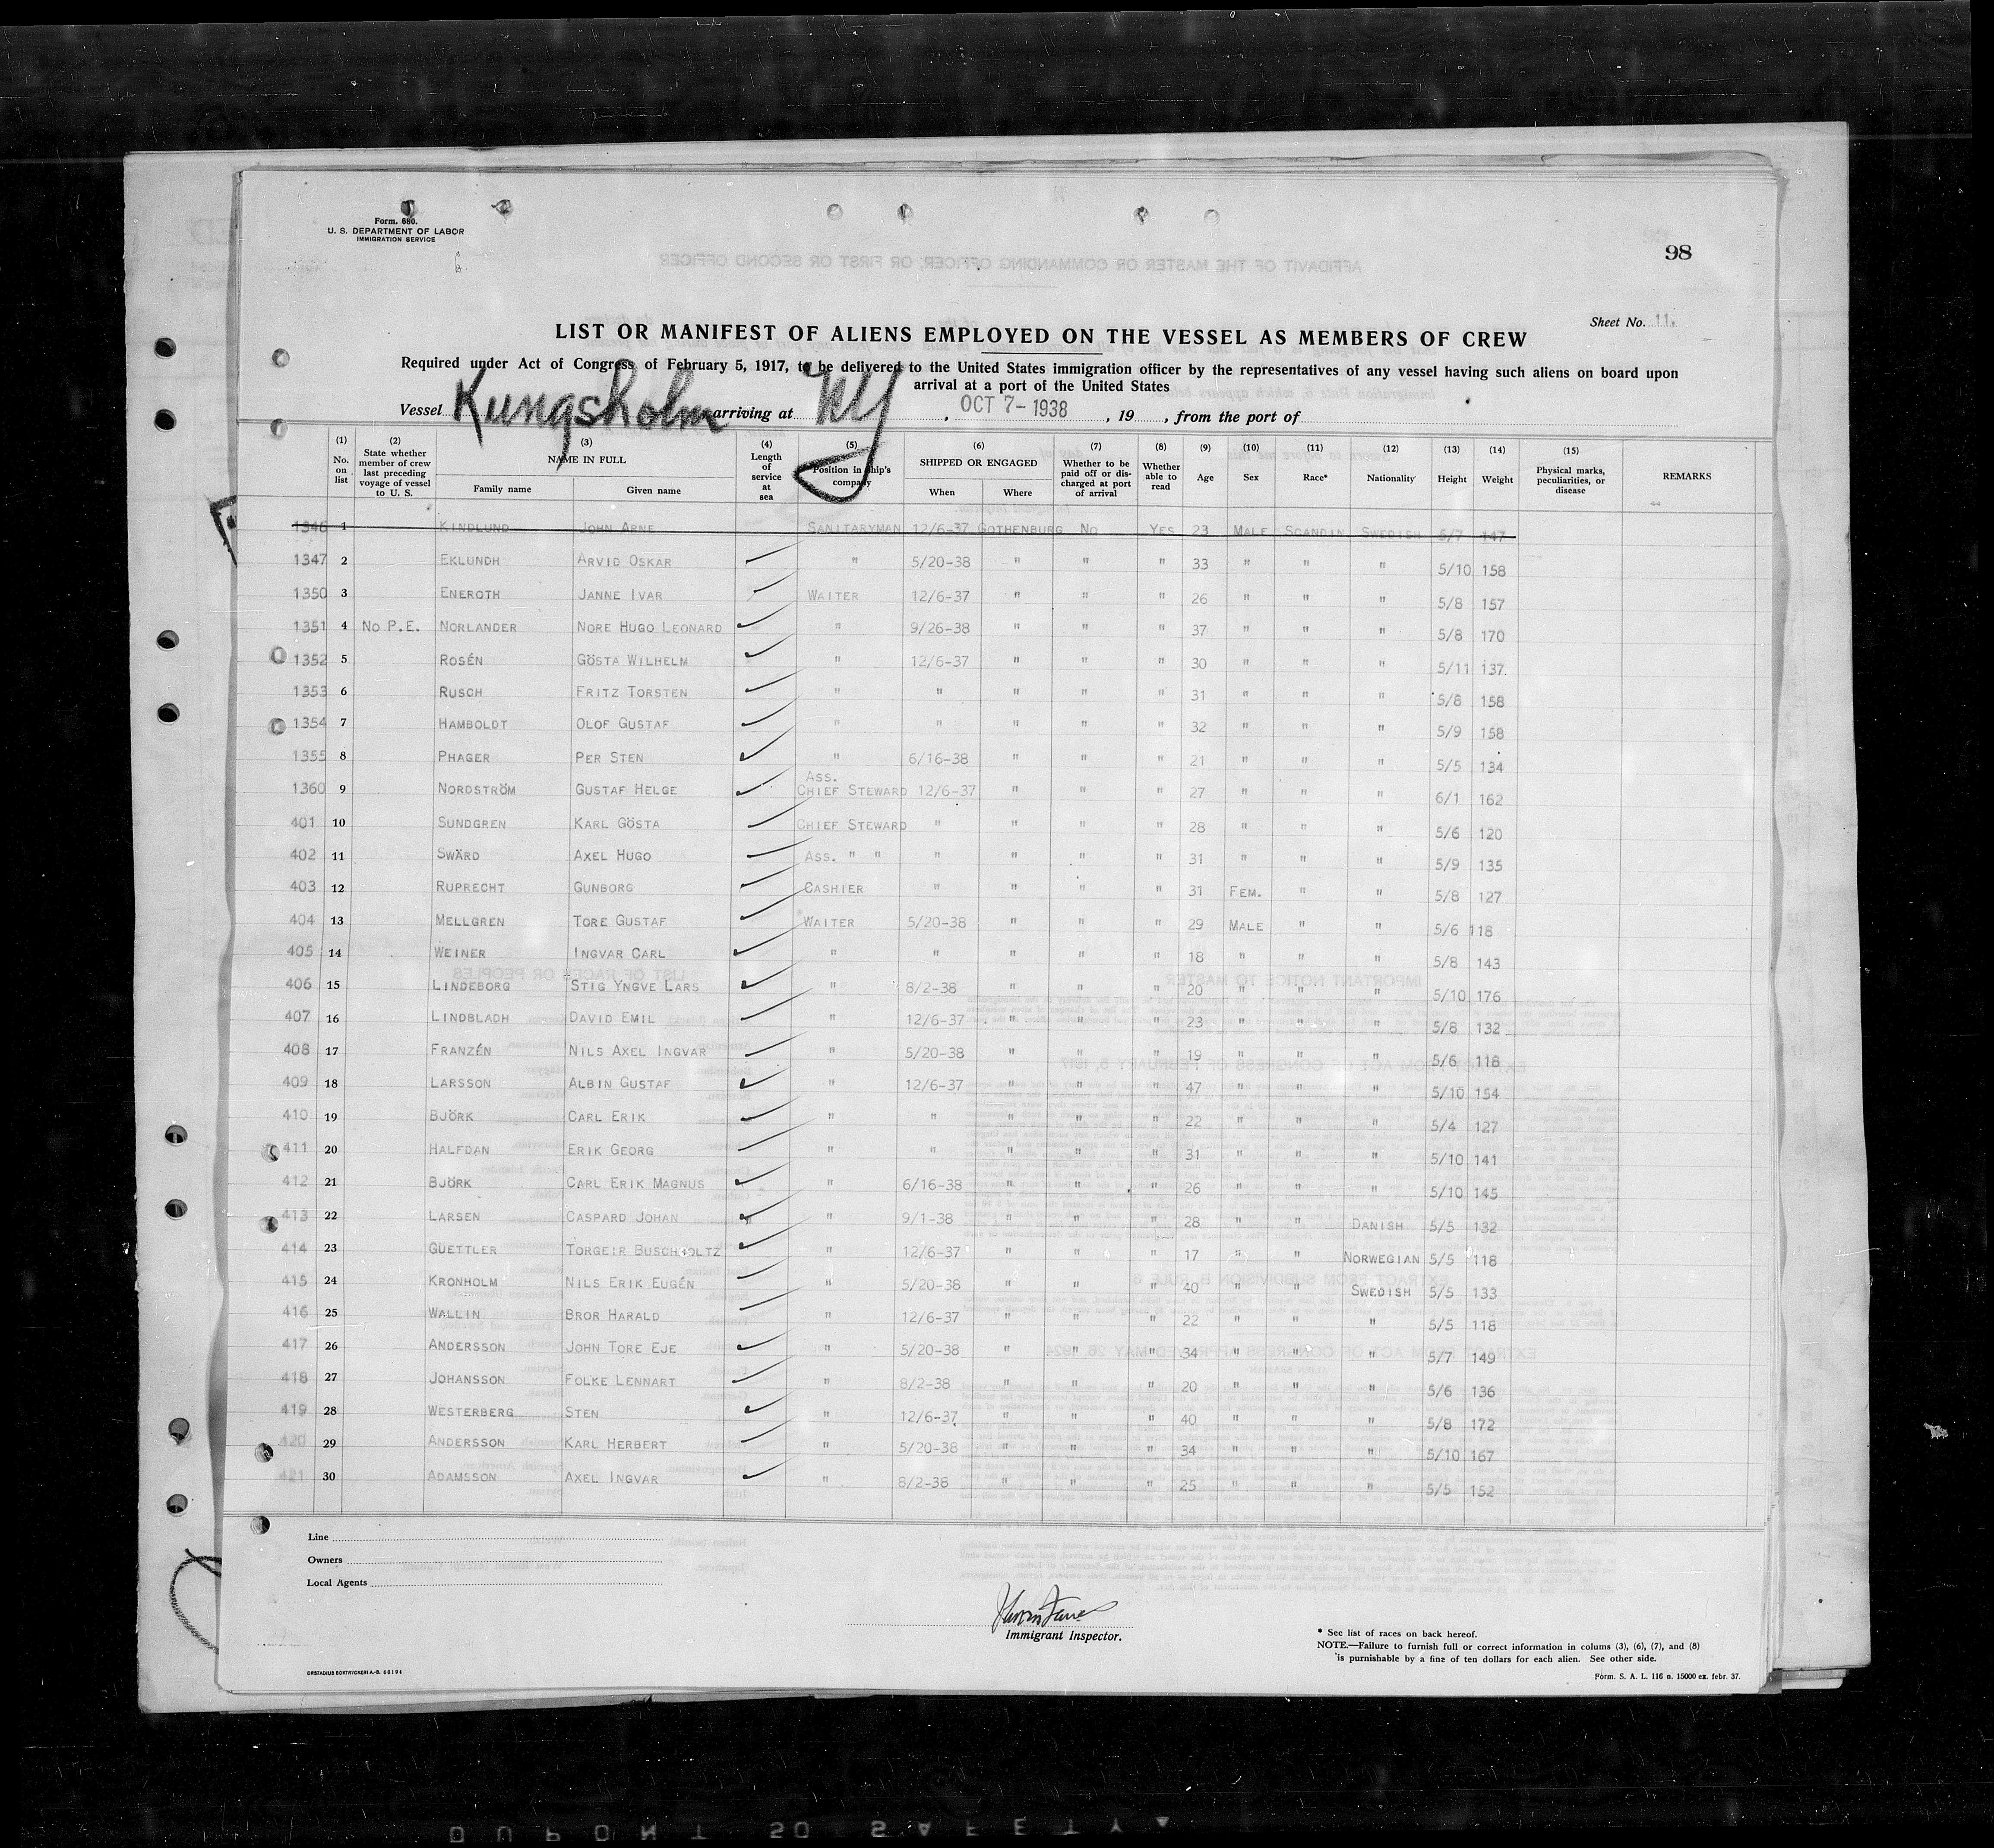 Form. 680.
U. S. DEPARTMENT OF LABOR
IMMIGRATION SERVICE
98
Sheet No. 11.
LIST OR MANIFEST OF ALIENS EMPLOYED ON THE VESSEL AS MEMBERS OF CREW
Required under Act of Congress of February 5, 1917, to be delivered to the United States immigration officer by the representatives of any vessel having such aliens on board upon
arrival at a port of the United States
Vessel Kungsholm arriving at NY, OCT 7- 1938, 19 , from the port of
(1) No. on list (2) State whether member of crew last preceding voyage of vessel to U. S. (3) NAME IN FULL Family name Given name (4) Length of service at sea (5) Position in ship's company (6) SHIPPED OR ENGAGED When Where (7) Whether to be paid off or discharged at port of arrival (8) Whether able to read (9) Age (10) Sex (11) Race* (12) Nationality (13) Height (14) Weight (15) Physical marks, peculiarities, or disease REMARKS
1346 1 KINDLUND JOHN ARNE SANITARYMAN 12/6-37 GOTHENBURG NO YES 23 MALE SCANDIN SWEDISH 5/7 147
1347 2 EKLUNDH ARVID OSKAR " 5/20-38 " " " 33 " " " 5/10 158
1350 3 ENEROTH JANNE IVAR WAITER 12/6-37 " " " 26 " " " 5/8 157
1351 4 NO P.E. NORLANDER NORE HUGO LEONARD " 9/26-38 " " " 37 " " " 5/8 170
1352 5 ROSÉN GÖSTA WILHELM " 12/6-37 " " " 30 " " " 5/11 137.
1353 6 RUSCH FRITZ TORSTEN " " " " " 31 " " " 5/8 158
1354 7 HAMBOLDT OLOF GUSTAF " " " " " 32 " " " 5/9 158
1355 8 PHAGER PER STEN " 6/16-38 " " " 21 " " " 5/5 134
1360 9 NORDSTRÖM GUSTAF HELGE ASS. CHIEF STEWARD 12/6-37 " " " 27 " " " 6/1 162
401 10 SUNDGREN KARL GÖSTA CHIEF STEWARD " " " " 28 " " " 5/6 120
402 11 SWÄRD AXEL HUGO ASS. " " " " " " 31 " " " 5/9 135
403 12 RUPRECHT GUNBORG CASHIER " " " " 31 FEM. " " 5/8 127
404 13 MELLGREN TORE GUSTAF WAITER 5/20-38 " " " 29 MALE " " 5/6 118
405 14 WEINER INGVAR CARL " " " " " 18 " " " 5/8 143
406 15 LINDEBORG STIG YNGVE LARS " 8/2-38 " " " 20 " " " 5/10 176
407 16 LINDBLADH DAVID EMIL " 12/6-37 " " " 23 " " " 5/8 132
408 17 FRANZÉN NILS AXEL INGVAR " 5/20-38 " " " 19 " " " 5/6 118
409 18 LARSSON ALBIN GUSTAF " 12/6-37 " " " 47 " " " 5/10 154
410 19 BJÖRK CARL ERIK " " " " " 22 " " " 5/4 127
411 20 HALFDAN ERIK GEORG " " " " " 31 " " " 5/10 141
412 21 BJÖRK CARL ERIK MAGNUS " 6/16-38 " " " 26 " " " 5/10 145
413 22 LARSEN CASPARD JOHAN " 9/1-38 " " " 28 " " DANISH 5/5 132
414 23 GUETTLER TORGEIR BUSCHHOLTZ " 12/6-37 " " " 17 " " NORWEGIAN 5/5 118
415 24 KRONHOLM NILS ERIK EUGÉN " 5/20-38 " " " 40 " " SWEDISH 5/5 133
416 25 WALLIN BROR HARALD " 12/6-37 " " " 22 " " " 5/5 118
417 26 ANDERSSON JOHN TORE EJE " 5/20-38 " " " 34 " " " 5/7 149
418 27 JOHANSSON FOLKE LENNART " 8/2-38 " " " 20 " " " 5/6 136
419 28 WESTERBERG STEN " 12/6-37 " " " 40 " " " 5/8 172
420 29 ANDERSSON KARL HERBERT " 5/20-38 " " " 34 " " " 5/10 167
421 30 ADAMSSON AXEL INGVAR " 8/2-38 " " " 25 " " " 5/5 152
Line
Owners
Local Agents
Immigrant Inspector.
* See list of races on back hereof.
NOTE.—Failure to furnish full or correct information in colums (3), (6), (7), and (8)
is punishable by a fine of ten dollars for each alien. See other side.
Form. S. A. L. 116 n. 15000 ex. febr. 37.
DUPONT 50 SAFETY